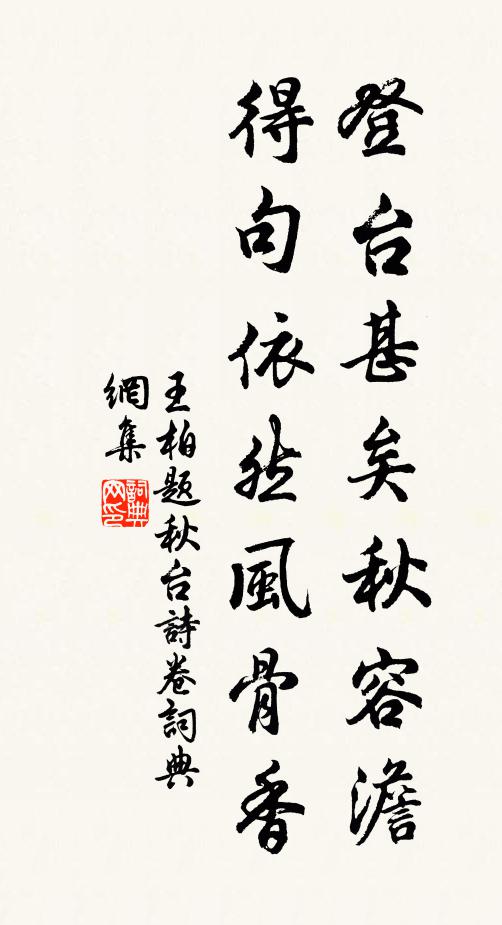 登台甚矣秋容澹
得句依然風骨香
王柏題秋台詩卷詞典
網集
詞典
网印